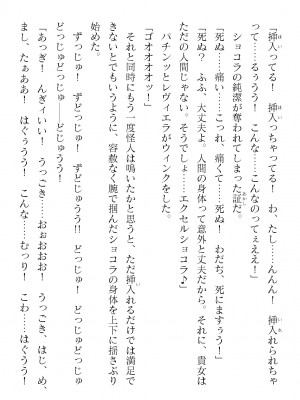 「挿入ってる！　挿入っちゃってる！　わ、たし……んんん！　挿入れられちゃ
って……るぅうう！　こんな……こんなのってぇええ！」
ショコラの純潔が奪われてしまった証だ。
「死ぬ……痛い……こっれ、痛くて……死ぬ！　わだち、死にますぅう！」
「死ぬ？　ふふ、大丈夫よ。人間の身体って意外と丈夫だから。それに、貴女は
ただの人間じゃない。そうでしょ……エクセルショコラ♪」
パチンッとレヴィエラがウィンクをした。
「ゴオオオオッ！」
それと同時にもう一度怪人は鳴いたかと思うと、ただ挿入れるだけでは満足で
きないとでもいうように、容赦なく腕で掴んだショコラの身体を上下に揺さぶり
始めた。
ずっじゅ！　ずどっじゅ！　ずどじゅうう!!　どっじゅ！　どっじゅどっじゅ
どっじゅどっじゅ！　どじゅうう！
「あっぎ！　んぎイいい！　うっごき……おぉおおお！　うっごき、はじ、め、
まし、たぁああ！　はぐぅうう！　こんな……むっり！　こわ……はぐうう！